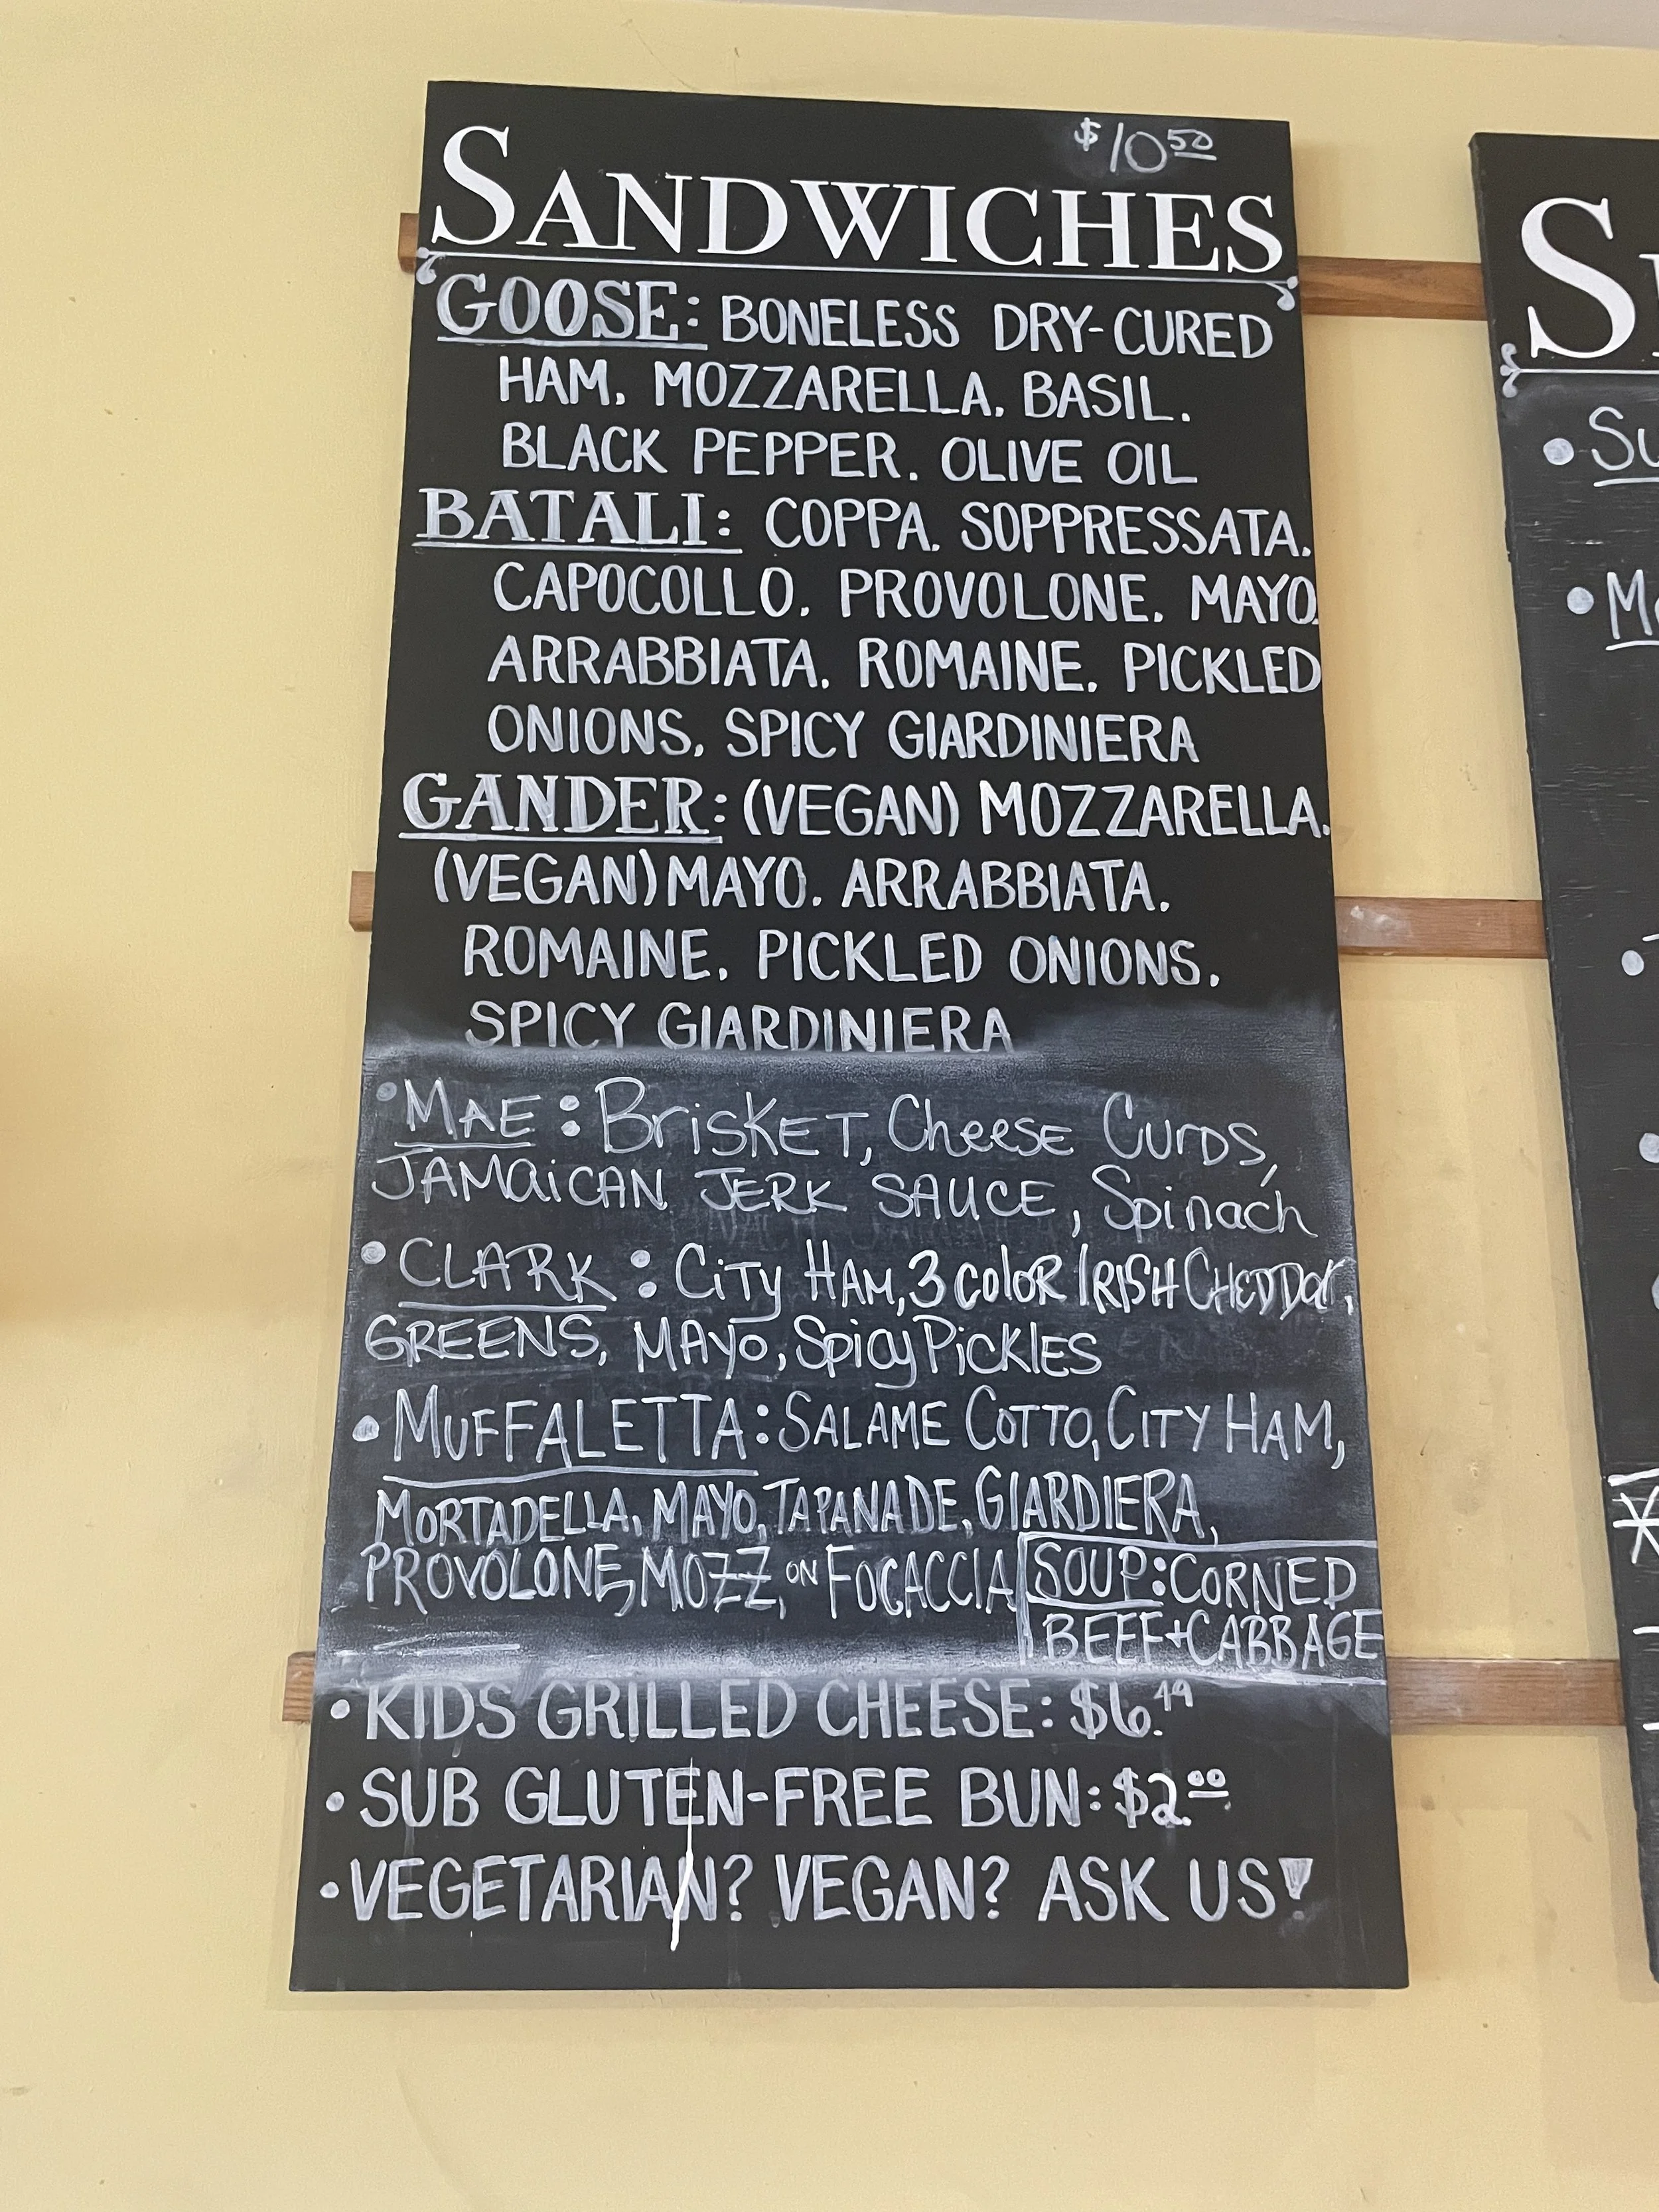 $10.50
SANDWICHES
GOOSE: BONELESS DRY-CURED
HAM, MOZZARELLA, BASIL,
BLACK PEPPER, OLIVE OIL
BATALI: COPPA, SOPPRESSATA,
CAPOCOLLO, PROVOLONE, MAYO,
ARRABBIATA, ROMAINE, PICKLED
ONIONS, SPICY GIARDINIERA
GANDER: (VEGAN) MOZZARELLA,
(VEGAN) MAYO, ARRABBIATA,
ROMAINE, PICKLED ONIONS,
SPICY GIARDINIERA
• MAE: BRISKET, Cheese CURDS,
JAMAICAN JERK SAUCE, Spinach
• CLARK: CITY HAM, 3 COLOR IRISH CHEDDAR,
GREENS, MAYO, Spicy PICKLES
• MUFFALETTA: SALAME COTTO, CITY HAM,
MORTADELLA, MAYO, TAPANADE, GIARDIERA,
PROVOLONE, MOZZ, ON FOCACCIA
SOUP: CORNED
BEEF + CABBAGE
• KIDS GRILLED CHEESE: $6.49
• SUB GLUTEN-FREE BUN: $2.00
• VEGETARIAN? VEGAN? ASK US!